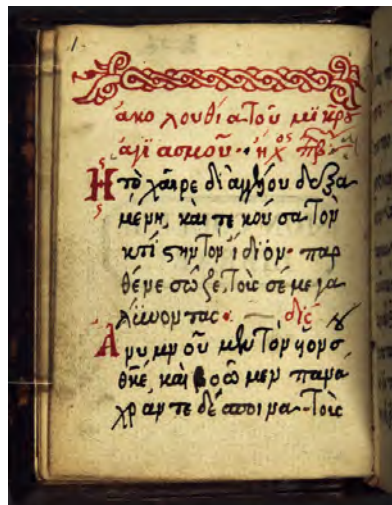 1.
ἀκολουθία τοῦ μικροῦ
ἁγιασμοῦ· ἦχος
Ἡ τὸ χαῖρε δι ἀγγέλου δεξα
μένη, καὶ τεκοῦσα τὸν
κτίστην τὸν ἴδιον· παρ
θένε σῶζε τοὺς σὲ μεγα
λύνοντας· δίς
Ἀνυμνοῦμεν τὸν υἱόν σου
θκε, καὶ βοῶμεν πανά
χραντε δέσποινα· τοὺς